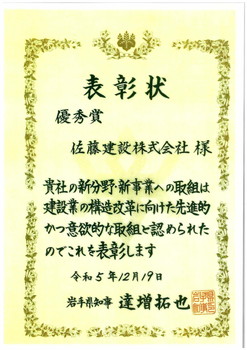 表彰状
優秀賞
佐藤建設株式会社 様
貴社の新分野・新事業への取組は
建設業の構造改革に向けた先進的
かつ意欲的な取組と認められた
のでこれを表彰します
令和5年12月19日
岩手県知事 達増拓也